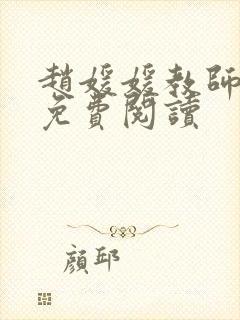 趙媛媛教師
免費閱讀
顏邱